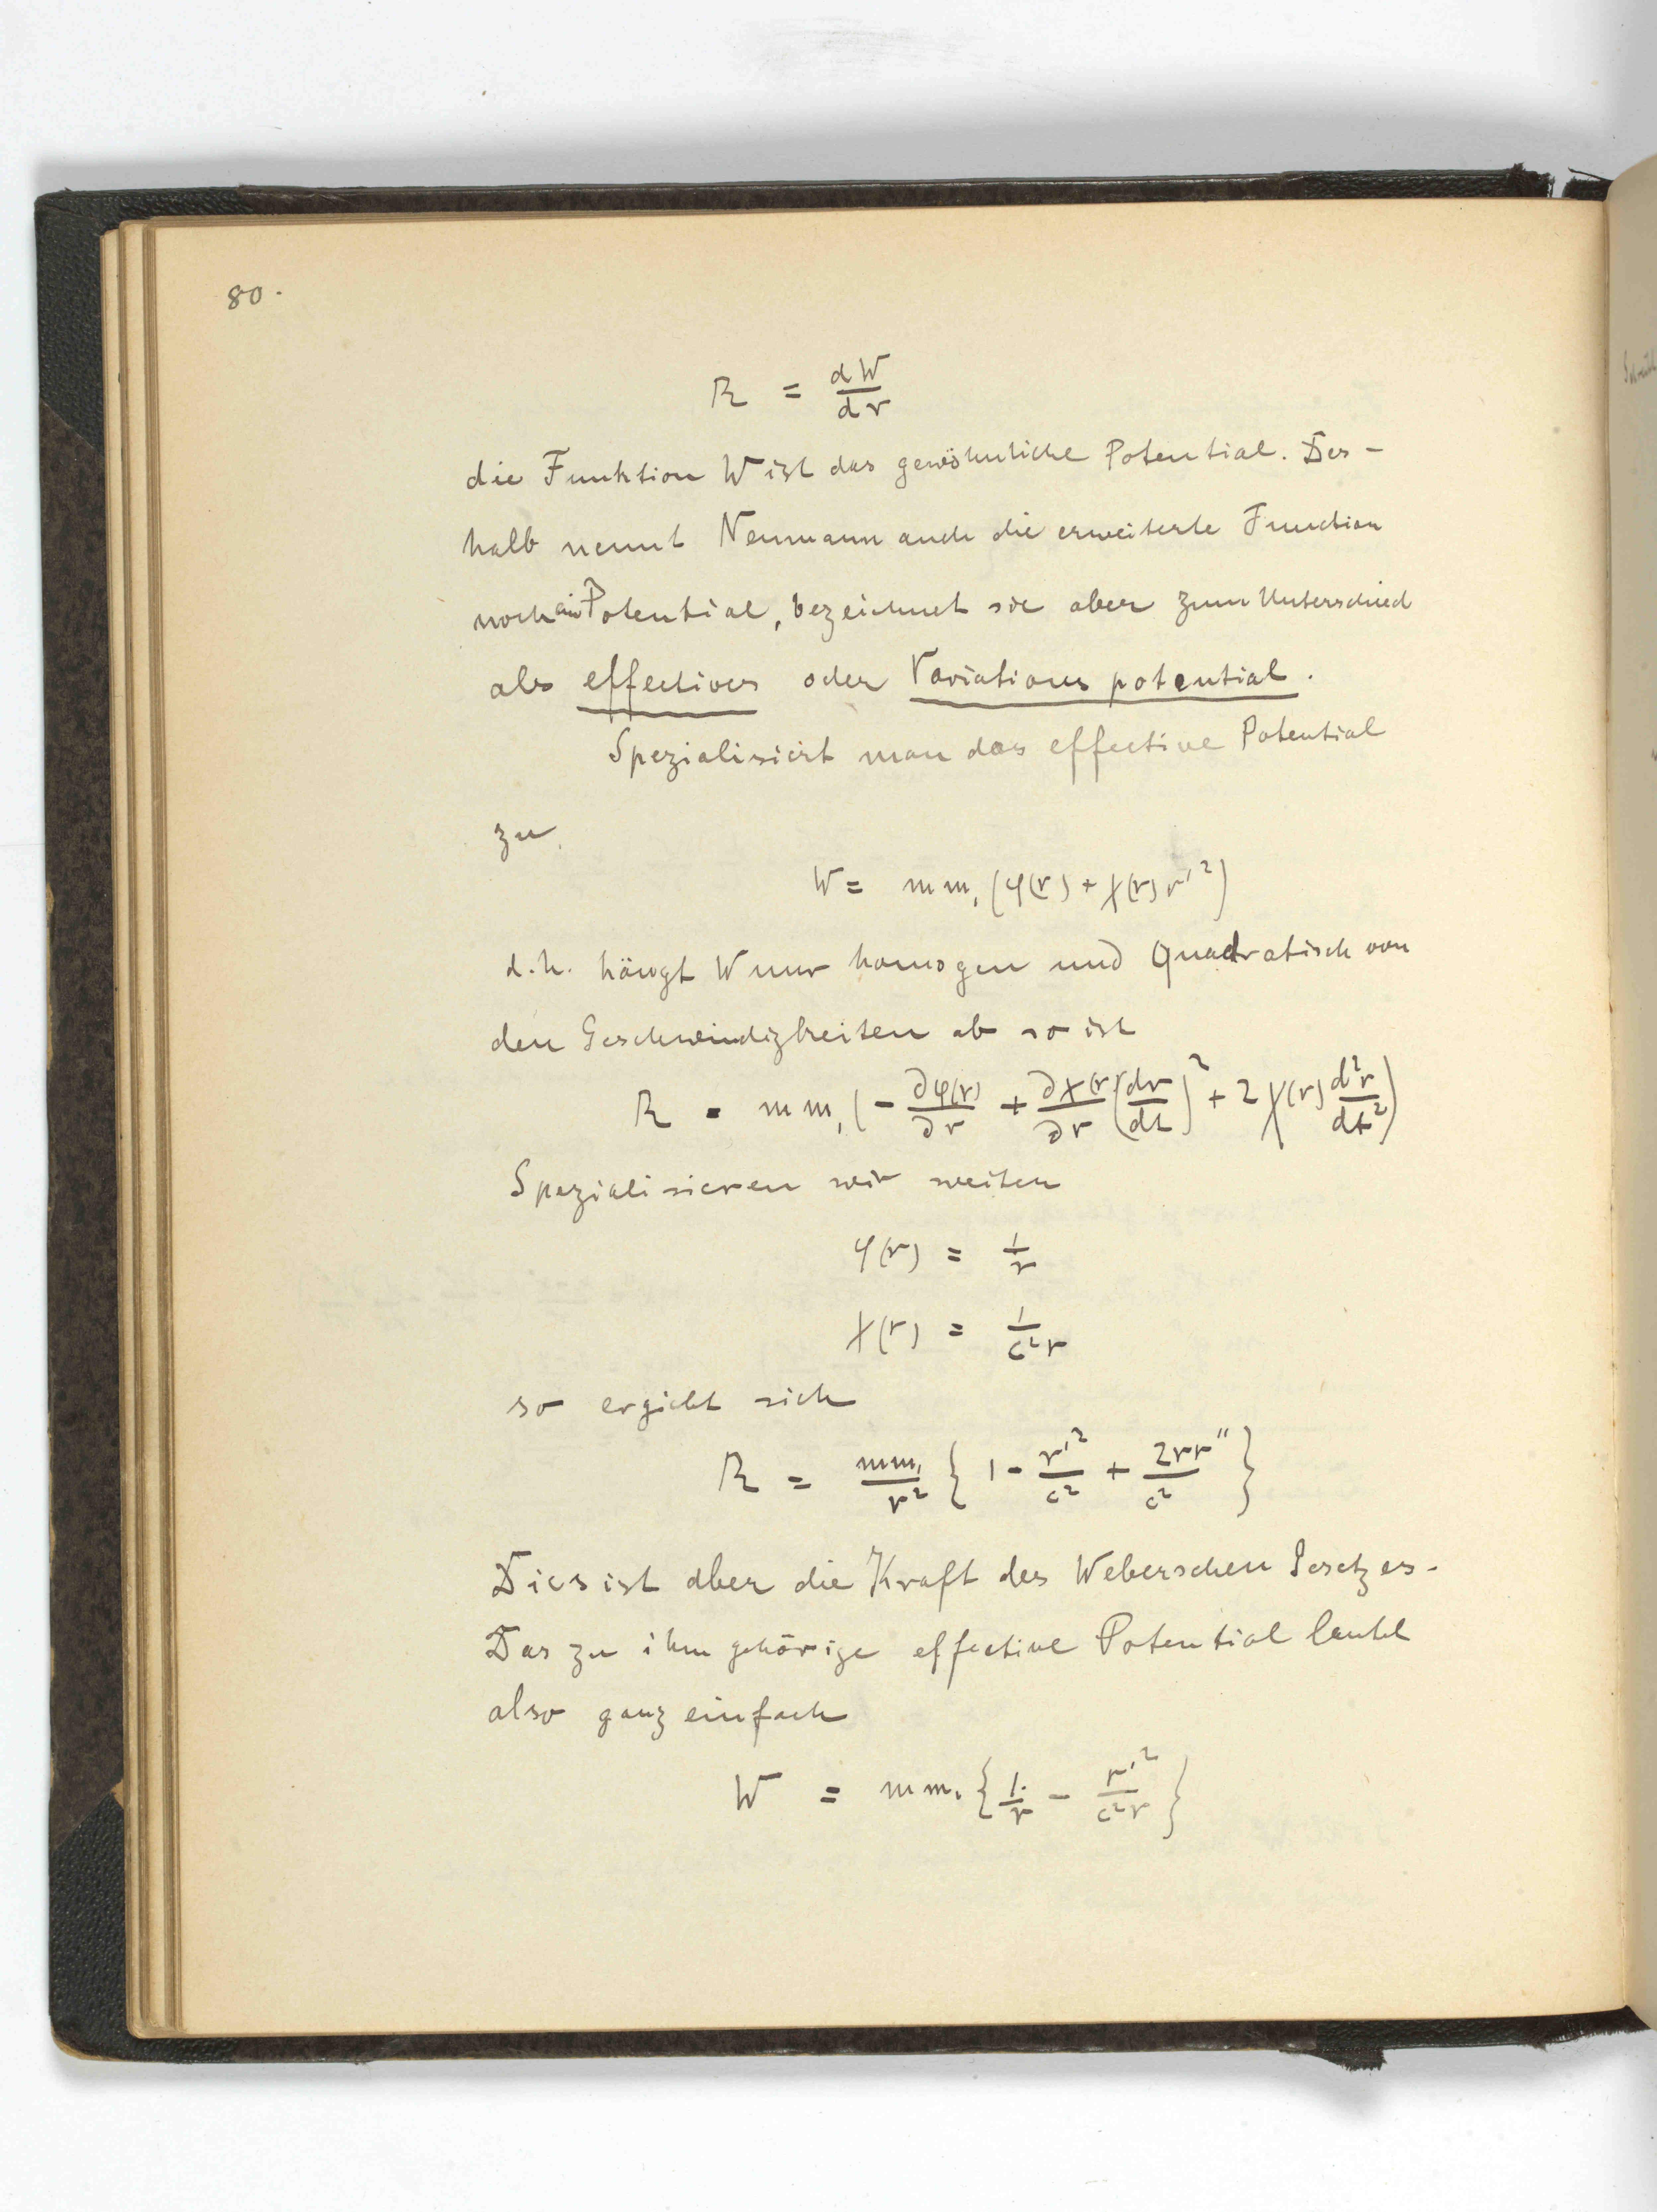 80.
R = dW/dr
die Funktion W ist das gewöhnliche Potential. Des-
halb nennt Neumann auch die erweiterte Function
noch ein Potential, bezeichnet sie aber zum Unterschied
als effectives oder Variations potential.
Spezialisiert man das effective Potential
zu
W = m m₁ (φ(r) + χ(r) r'²)
d.h. hängt W nur homogen und Quadratisch von
den Geschwindigkeiten ab so ist
R = m m₁ (- ∂φ(r)/∂r + ∂χ(r)/∂r (dr/dt)² + 2 χ(r) d²r/dt²)
Spezialisieren wir weiter
φ(r) = 1/r
χ(r) = 1/c²r
so ergiebt sich
R = mm₁/r² { 1 - r'²/c² + 2rr''/c² }
Dies ist aber die Kraft des Weberschen Gesetzes.
Das zu ihm gehörige effective Potential lautet
also ganz einfach
W = m m₁ { 1/r - r'²/c²r }